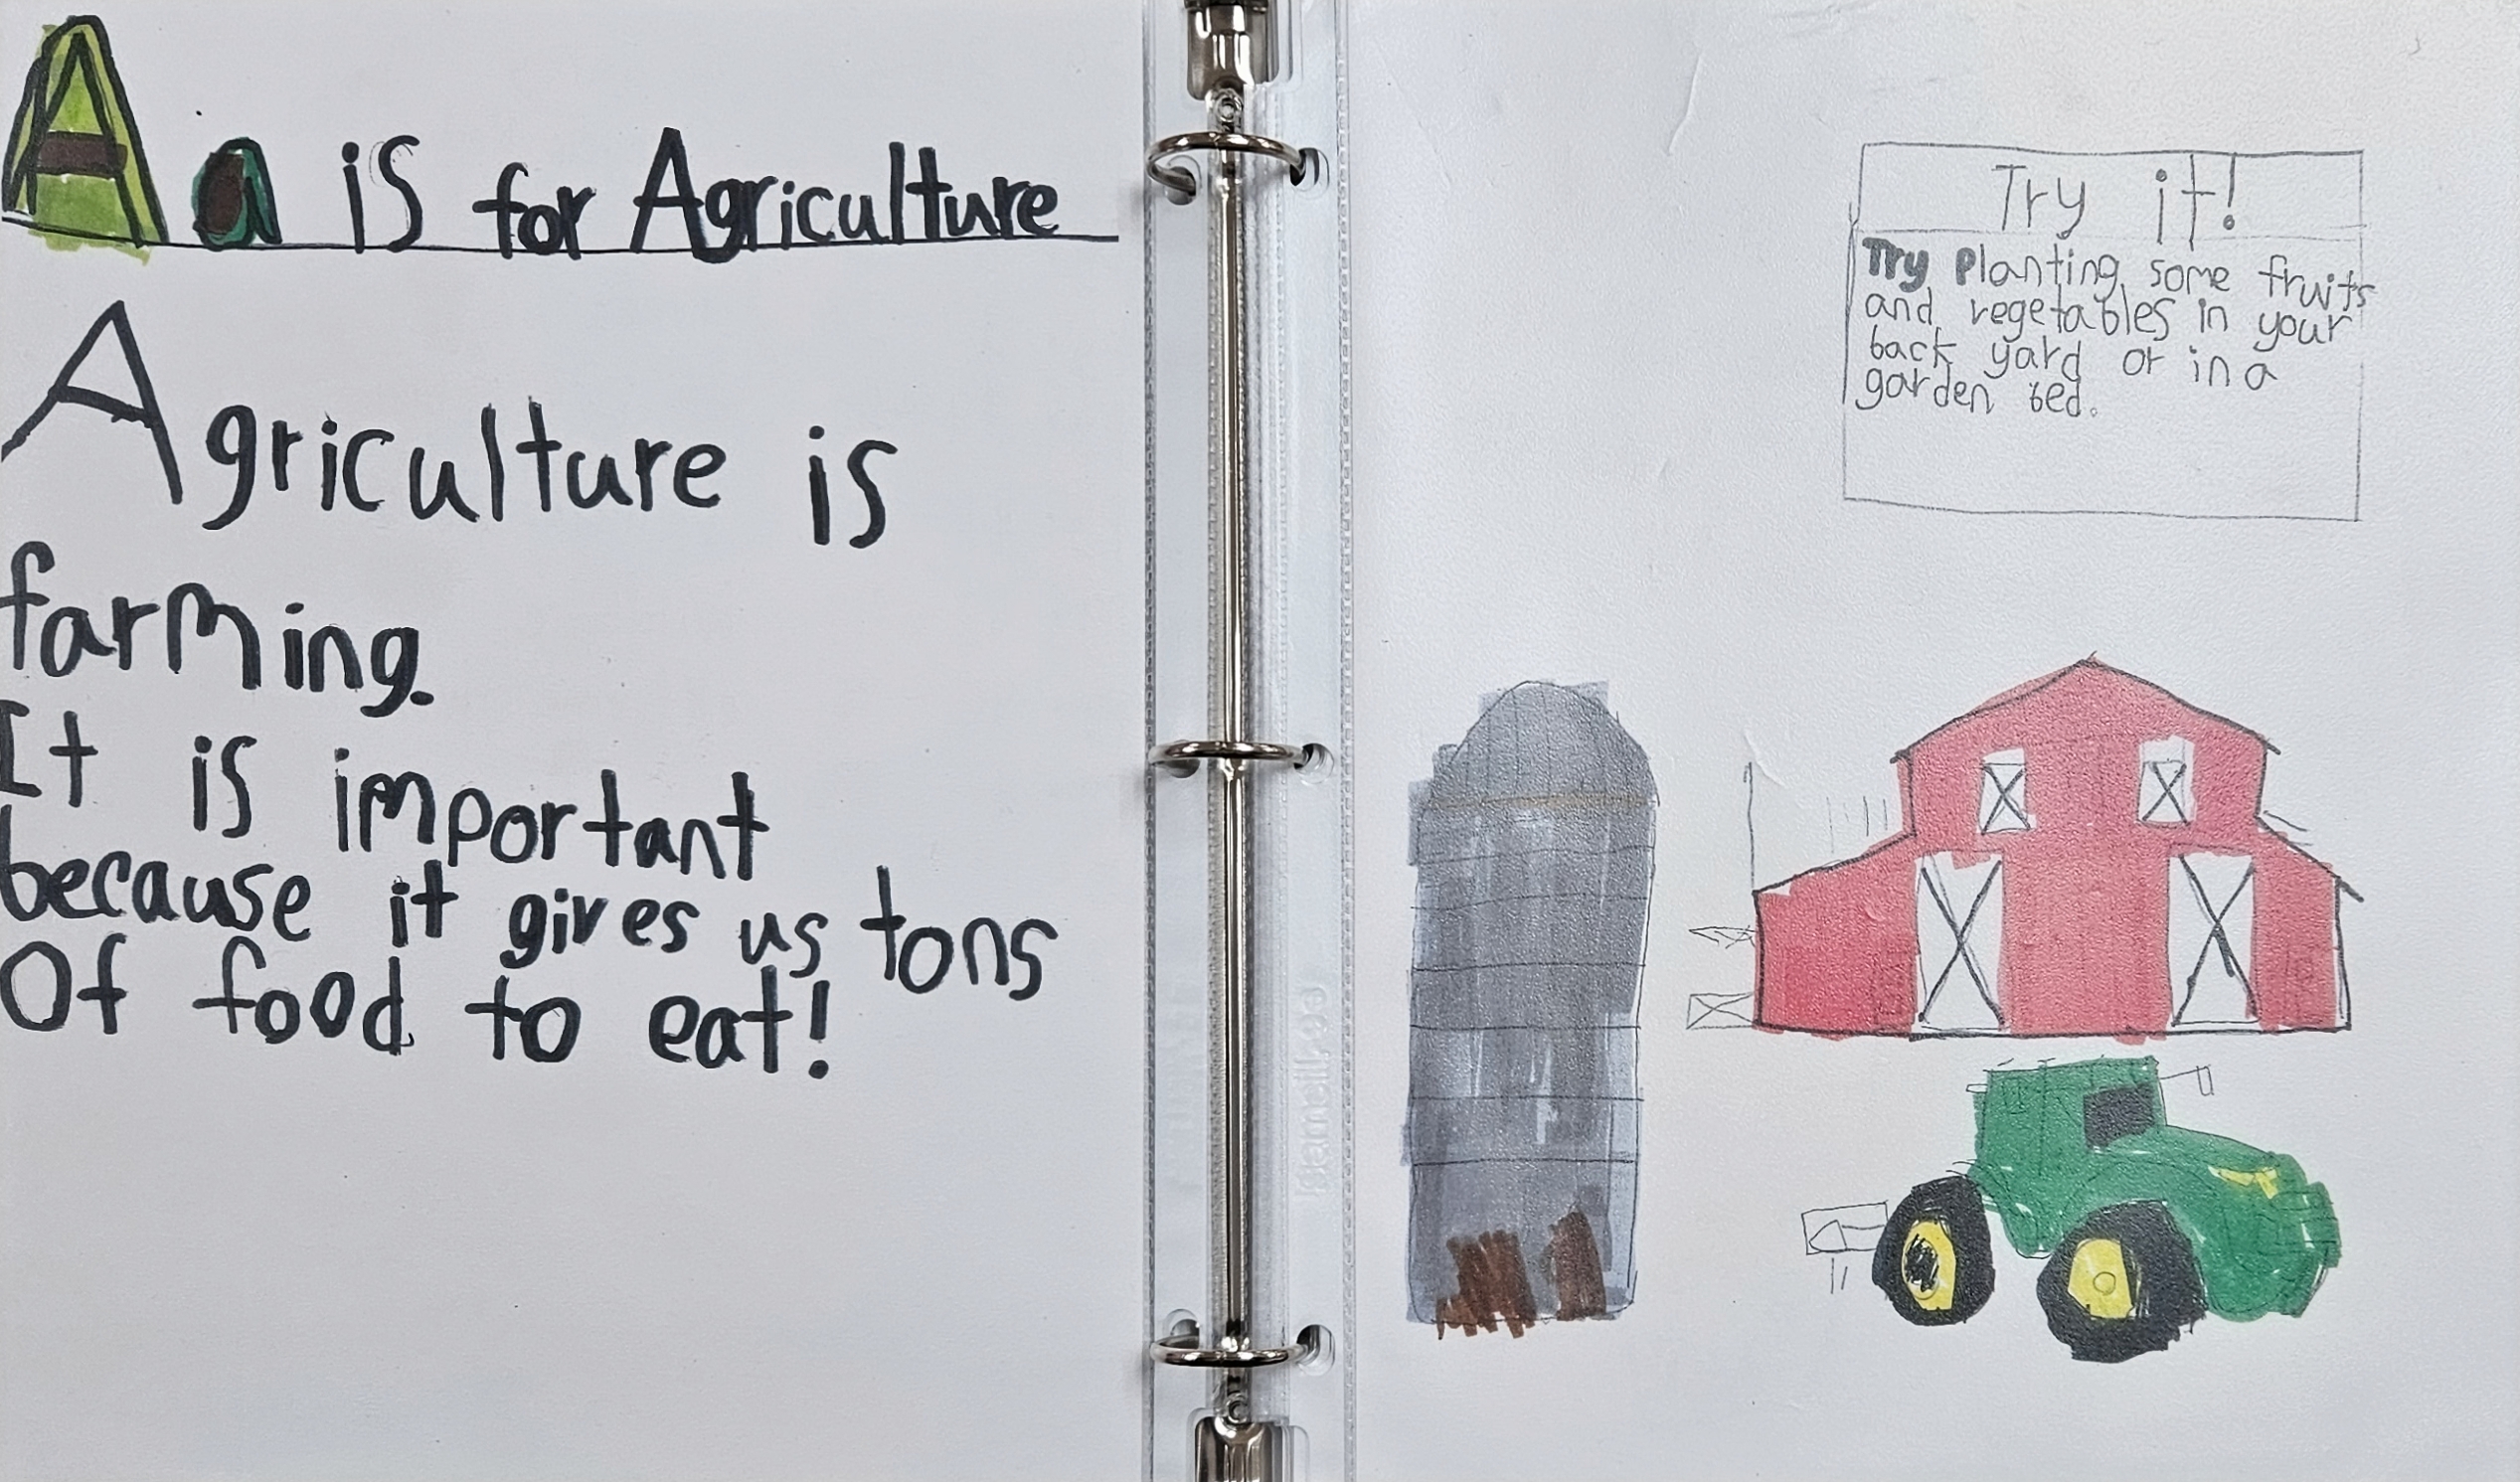 Aa is for Agriculture
Agriculture is
farming.
It is important
because it gives us tons
Of food to eat!
Try it!
Try Planting some fruits
and vegetables in your
back yard or in a
garden bed.